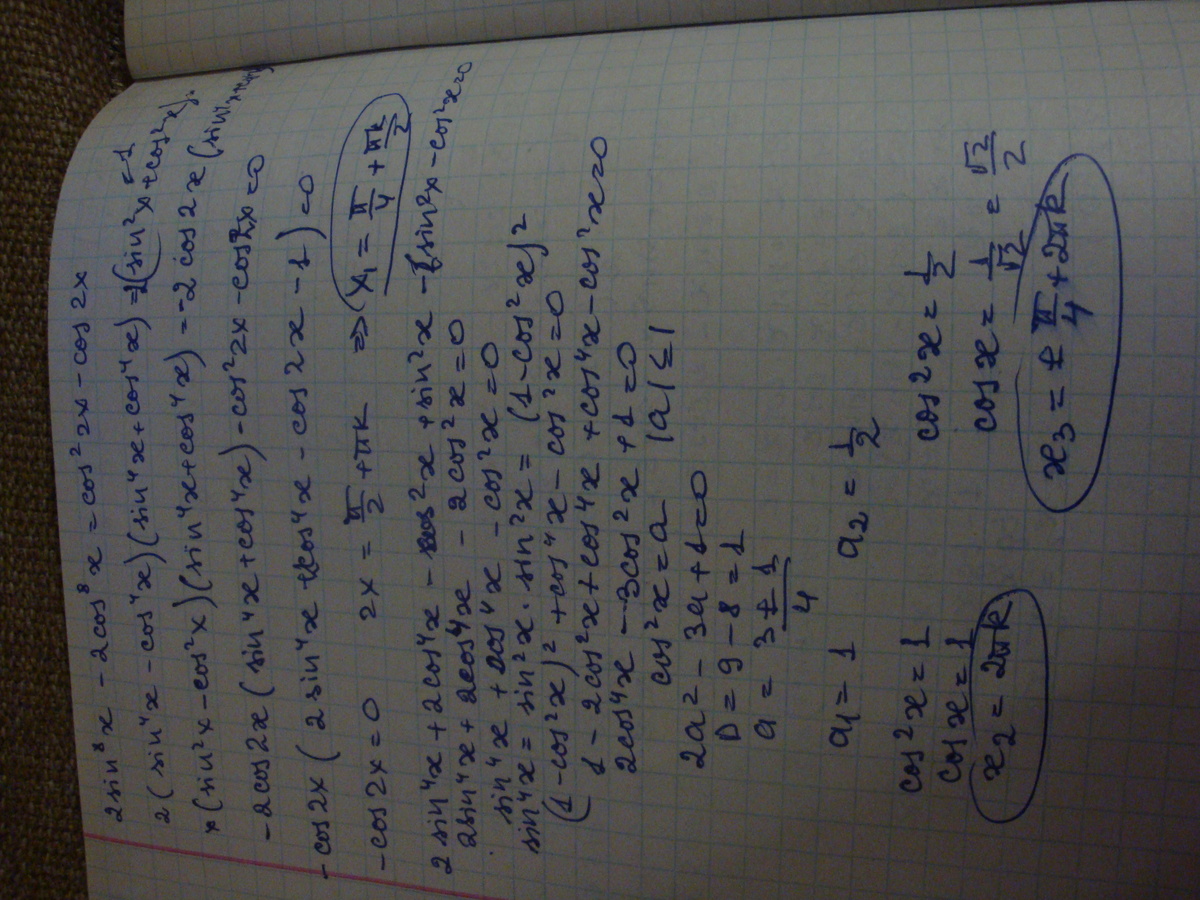 2sin⁸x - 2cos⁸x = cos²2x - cos2x
2(sin⁴x - cos⁴x)(sin⁴x + cos⁴x) = 2(sin²x + cos²x)·
=1
×(sin²x - cos²x)(sin⁴x + cos⁴x) = -2cos2x
-2cos2x(sin⁴x + cos⁴x) - cos²2x - cos2x = 0
-cos2x(2sin⁴x + 2cos⁴x - cos2x - 1) = 0
-cos2x = 0 2x = π/2 + πk ⇒ x₁ = π/4 + πk/2
2sin⁴x + 2cos⁴x - cos²x + sin²x - sin²x - cos²x = 0
2sin⁴x + 2cos⁴x - 2cos²x = 0
sin⁴x + cos⁴x - cos²x = 0
sin⁴x = sin²x · sin²x = (1 - cos²x)²
(1 - cos²x)² + cos⁴x - cos²x = 0
1 - 2cos²x + cos⁴x + cos⁴x - cos²x = 0
2cos⁴x - 3cos²x + 1 = 0
cos²x = a |a| ≤ 1
2a² - 3a + 1 = 0
D = 9 - 8 = 1
a = (3 ± 1)/4
a₁ = 1 a₂ = 1/2
cos²x = 1 cos²x = 1/2
cosx = 1 cosx = 1/√2 = √2/2
x₂ = 2πk x₃ = ± π/4 + 2πk